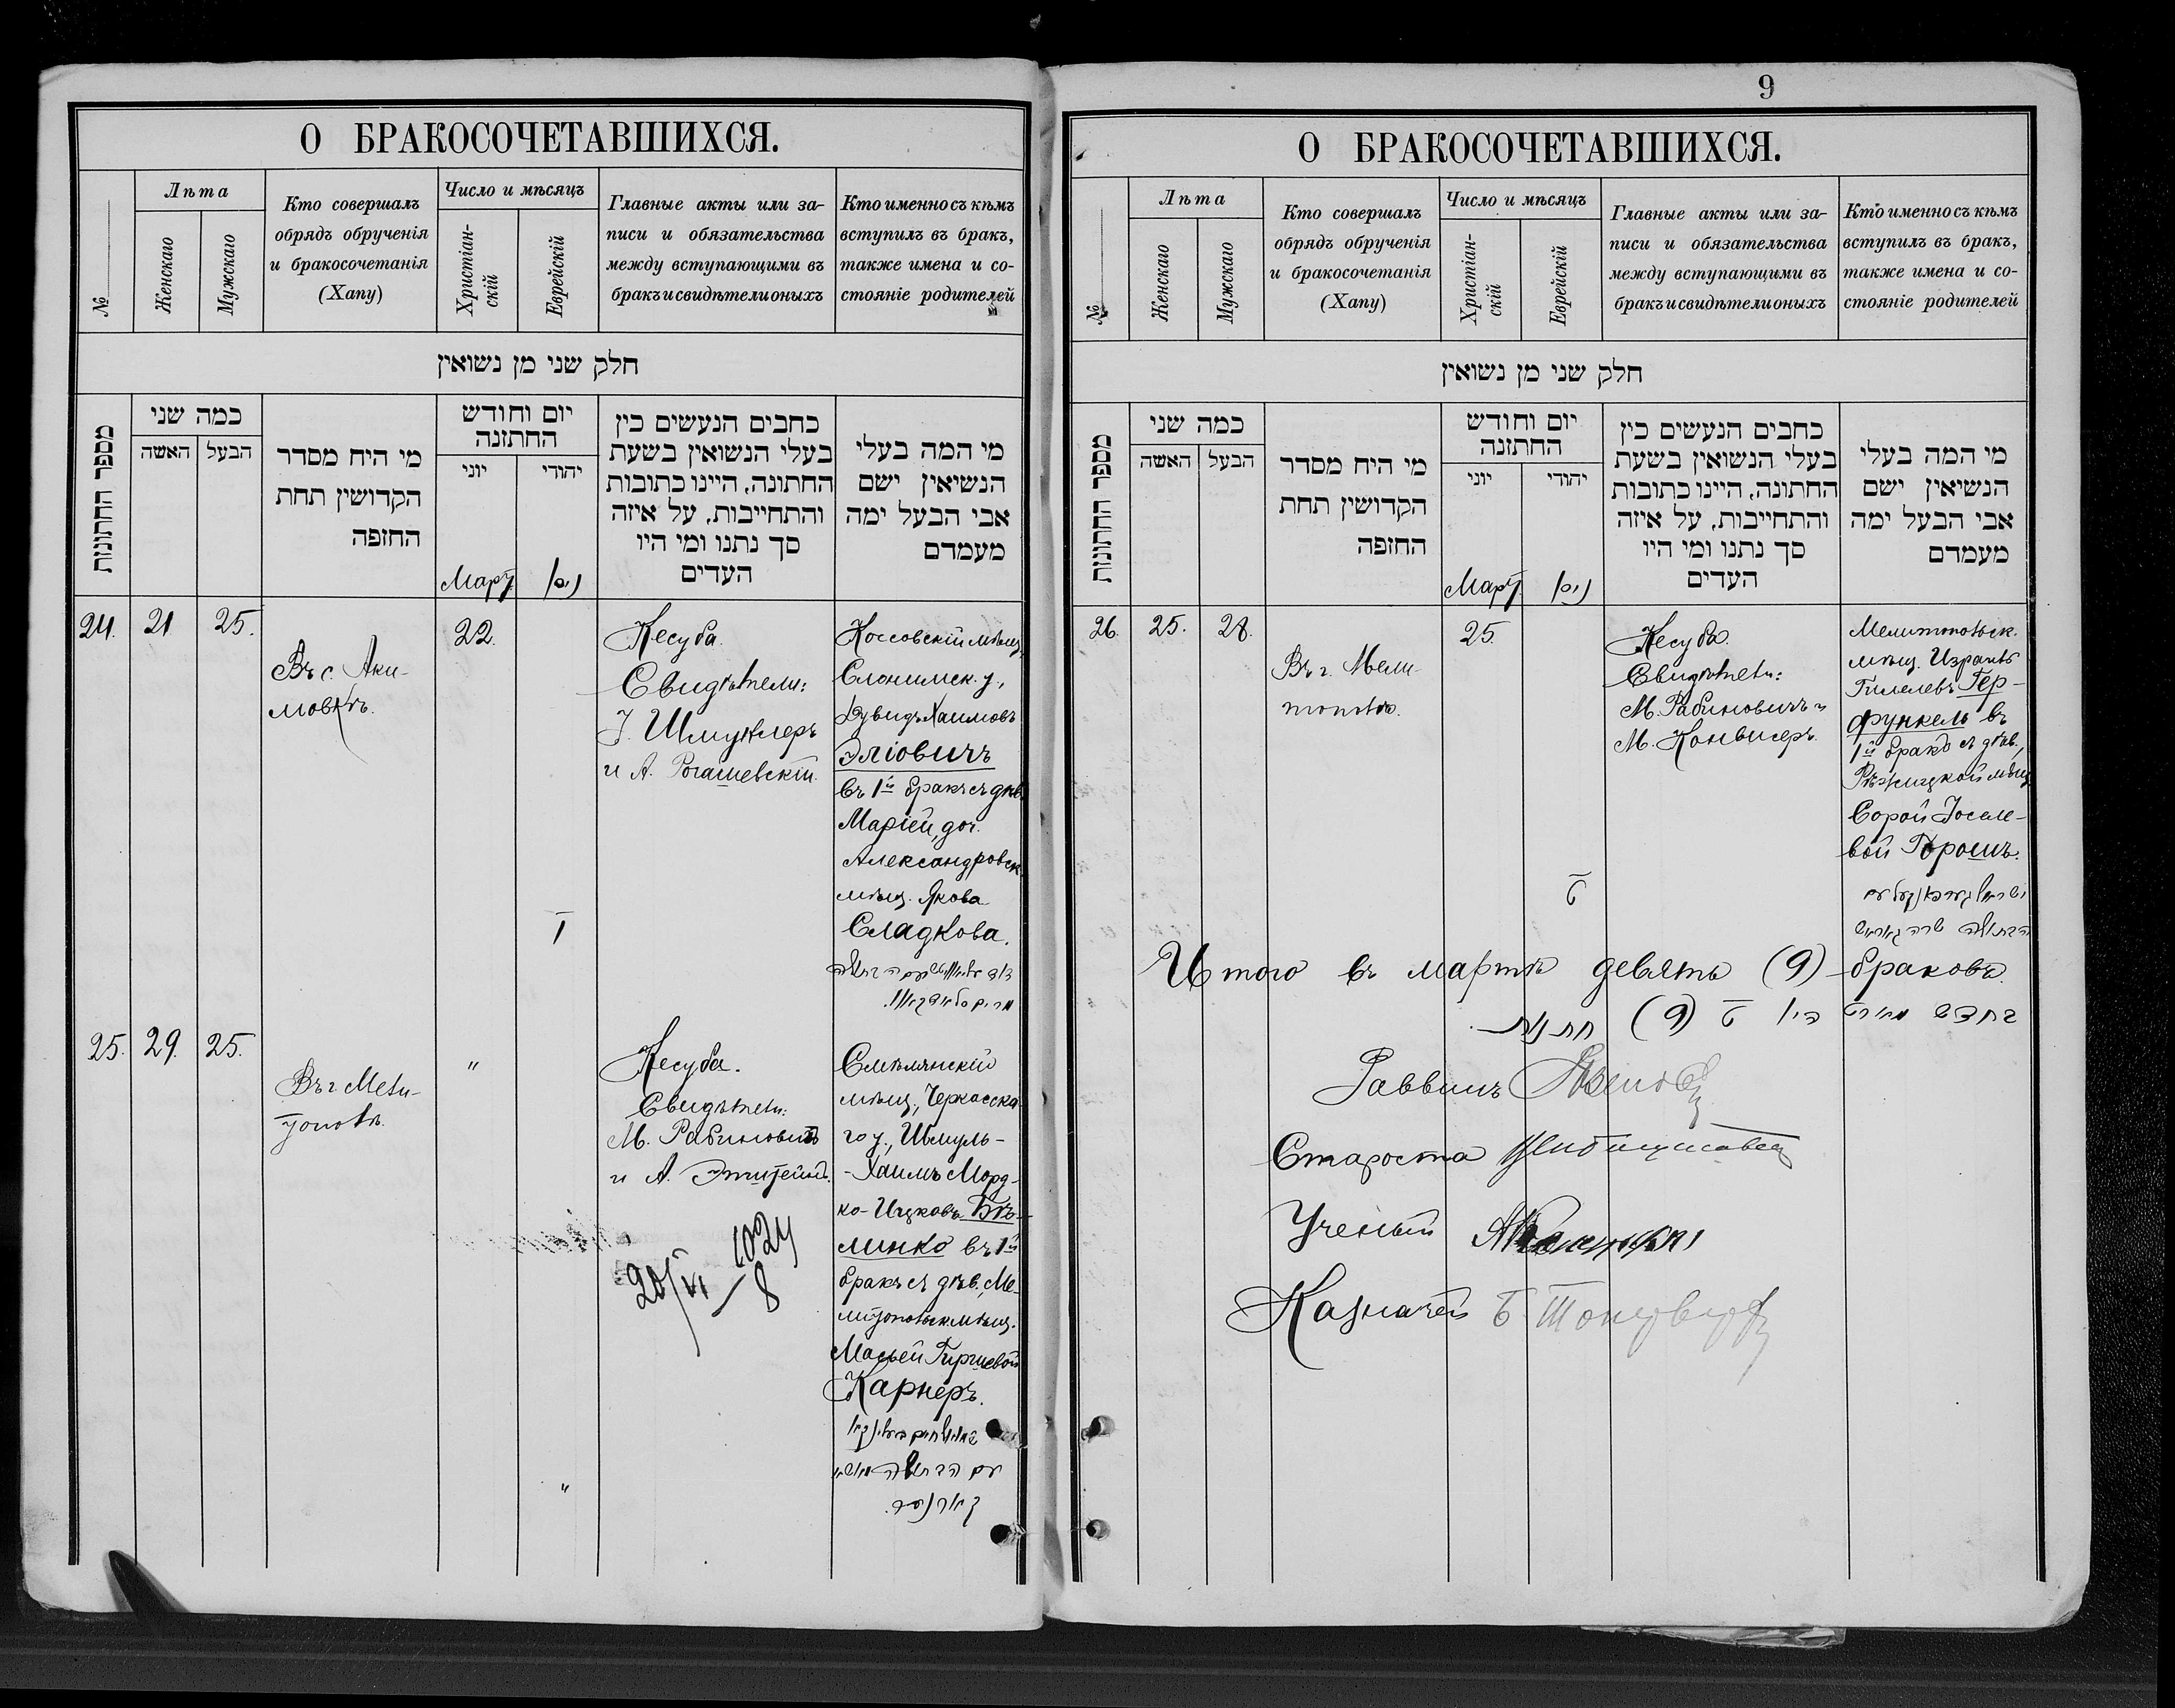 9
О БРАКОСОЧЕТАВШИХСЯ.
№
Лѣта
Женскаго
Мужскаго
Кто совершалъ
обрядъ обрученія
и бракосочетанія
(Хапу)
Число и мѣсяцъ
Христіан-
скій
Еврейскій
Главные акты или за-
писи и обязательства
между вступающими въ
бракъ и свидѣтели оныхъ
Кто именно съ кѣмъ
вступилъ въ бракъ,
также имена и со-
стояніе родителей
חלק שני מן נשואין
מספר החתונות
כמה שני
האשה
הבעל
מי היח מסדר
הקדושין תחת
החזפה
יום וחודש
החתזנה
יוני
יהודי
Март
ניסן
כחבים הנעשים כין
בעלי הנשואין בשעת
החתונה, היינו כתובות
והתחייבות, על איזה
סך נתנו ומי היו
העדים
מי המה בעלי
הנשיאין ישם
אבי הבעל ימה
מעמדם
24.
21
25.
Въ с. Аки-
мовкѣ.
22.
ז
Кесуба.
Свидѣтели:
І. Шмуклеръ
и А. Рогашевскій.
Коссовскій мѣщ.
Слонимск. у.,
Дувидъ Хаимовъ
Эліовичъ
въ 1й бракъ съ дѣв.
Маріей, доч.
Александровск.
мѣщ. Якова
Сладкова.
25.
29.
25.
Въ г. Мели-
тополѣ.
"
"
Кесуба.
Свидѣтели:
М. Рабиновичъ
и А. Эпштейнъ.
20/VI
1024
8
Смѣлянскій
мѣщ., Черкасска-
го у., Шмуль-
-Хаимъ Морд-
ко-Ицковъ Бѣ-
линко въ 1й
бракъ съ дѣв., Ме-
литопольск. мѣщ.
Масьей Гиршевой
Карнеръ.
О БРАКОСОЧЕТАВШИХСЯ.
№
Лѣта
Женскаго
Мужскаго
Кто совершалъ
обрядъ обрученія
и бракосочетанія
(Хапу)
Число и мѣсяцъ
Христіан-
скій
Еврейскій
Главные акты или за-
писи и обязательства
между вступающими въ
бракъ и свидѣтели оныхъ
Кто именно съ кѣмъ
вступилъ въ бракъ,
также имена и со-
стояніе родителей
חלק שני מן נשואין
מספר החתונות
כמה שני
האשה
הבעל
מי היח מסדר
הקדושין תחת
החזפה
יום וחודש
החתזנה
יוני
יהודי
Март
ניסן
כחבים הנעשים כין
בעלי הנשואין בשעת
החתונה, היינו כתובות
והתחייבות, על איזה
סך נתנו ומי היו
העדים
מי המה בעלי
הנשיאין ישם
אבי הבעל ימה
מעמדם
26.
25.
28.
Въ г. Мели-
тополѣ.
25.
Кесуба.
Свидѣтели:
М. Рабиновичъ и
М. Конвисеръ.
Мелитопольск.
мѣщ. Израиль
Гилелевъ Гер-
функель въ
1й бракъ съ дѣв.,
Рѣжицкой мѣщ.
Сорой Іоселе-
вой Горошъ.
ט
Итого въ мартѣ девять (9) браковъ.
בחדש מארט היו ט (9) חתנות.
Раввинъ
Староста
Ученый
Казначей